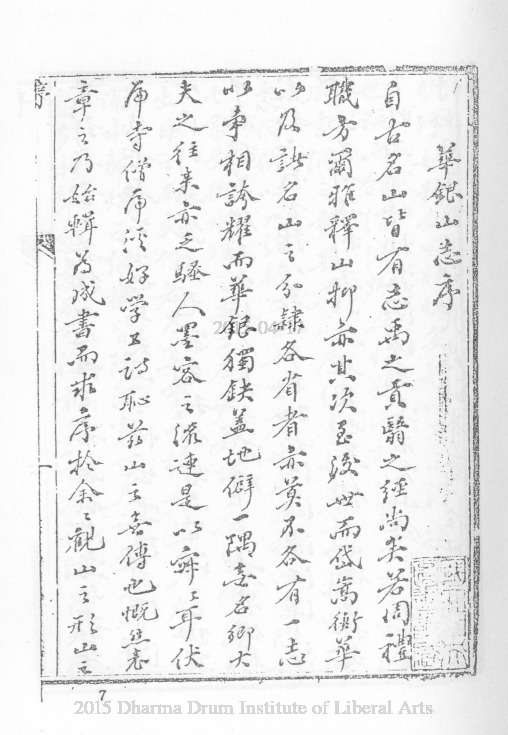 華銀山志序
自古名山皆有志禹之貢翳之經尚矣若周禮
職方爾雅釋山抑亦其次至後世而岱嵩衡華
以及諸名山之分隸各省者亦莫不各有一志
以爭相誇耀而華銀獨缺蓋地僻一隅無名卿大
夫之往來亦乏騷人墨客之流連是以寥寥耳伏
虎寺僧虎溪好學工詩恥茲山之無傳也慨然
章之乃始輯為成書而求序於余々觀山之形山之
序
7
2015 Dharma Drum Institute of Liberal Arts